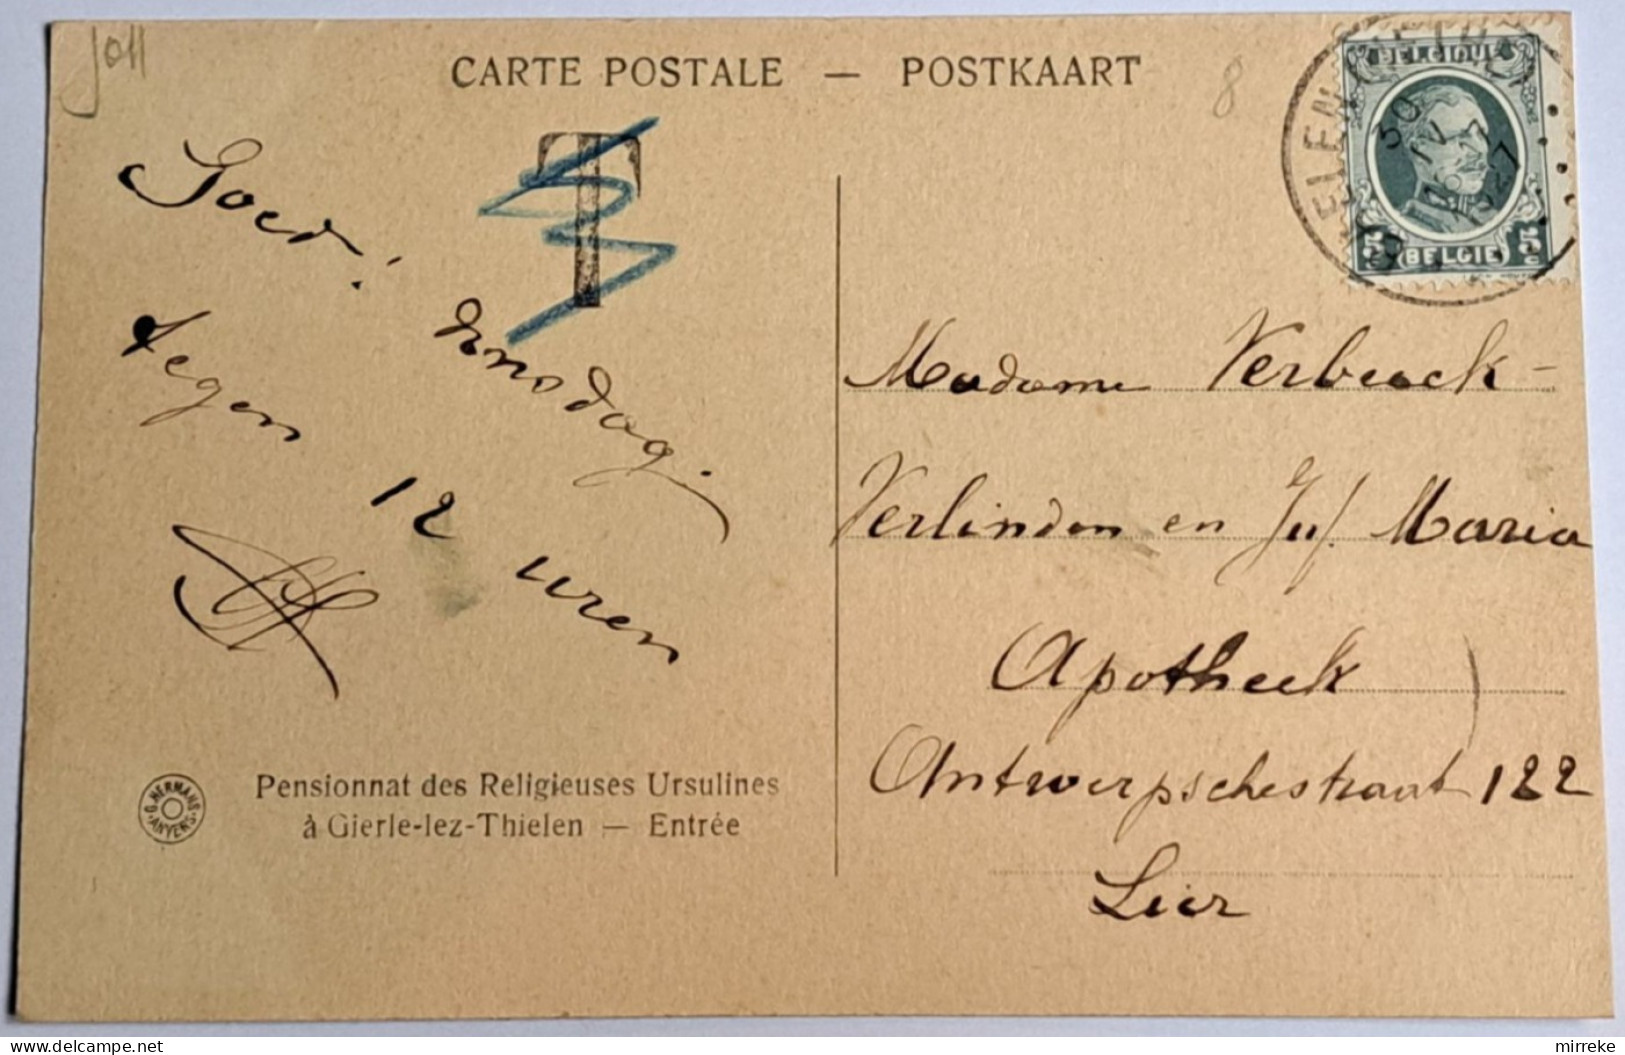 Joll
CARTE POSTALE — POSTKAART
8
BELGIQUE
30 IV
1927
5c BELGIE 5c
T
Goed! dinsdag.
tegen 12 uren
Madame Verbeeck-
Verlinden en Juf. Maria
Apotheek
Antwerpschestraat 122
Lier
G. HERMANS ANVERS
Pensionnat des Religieuses Ursulines
à Gierle-lez-Thielen — Entrée
mirreke